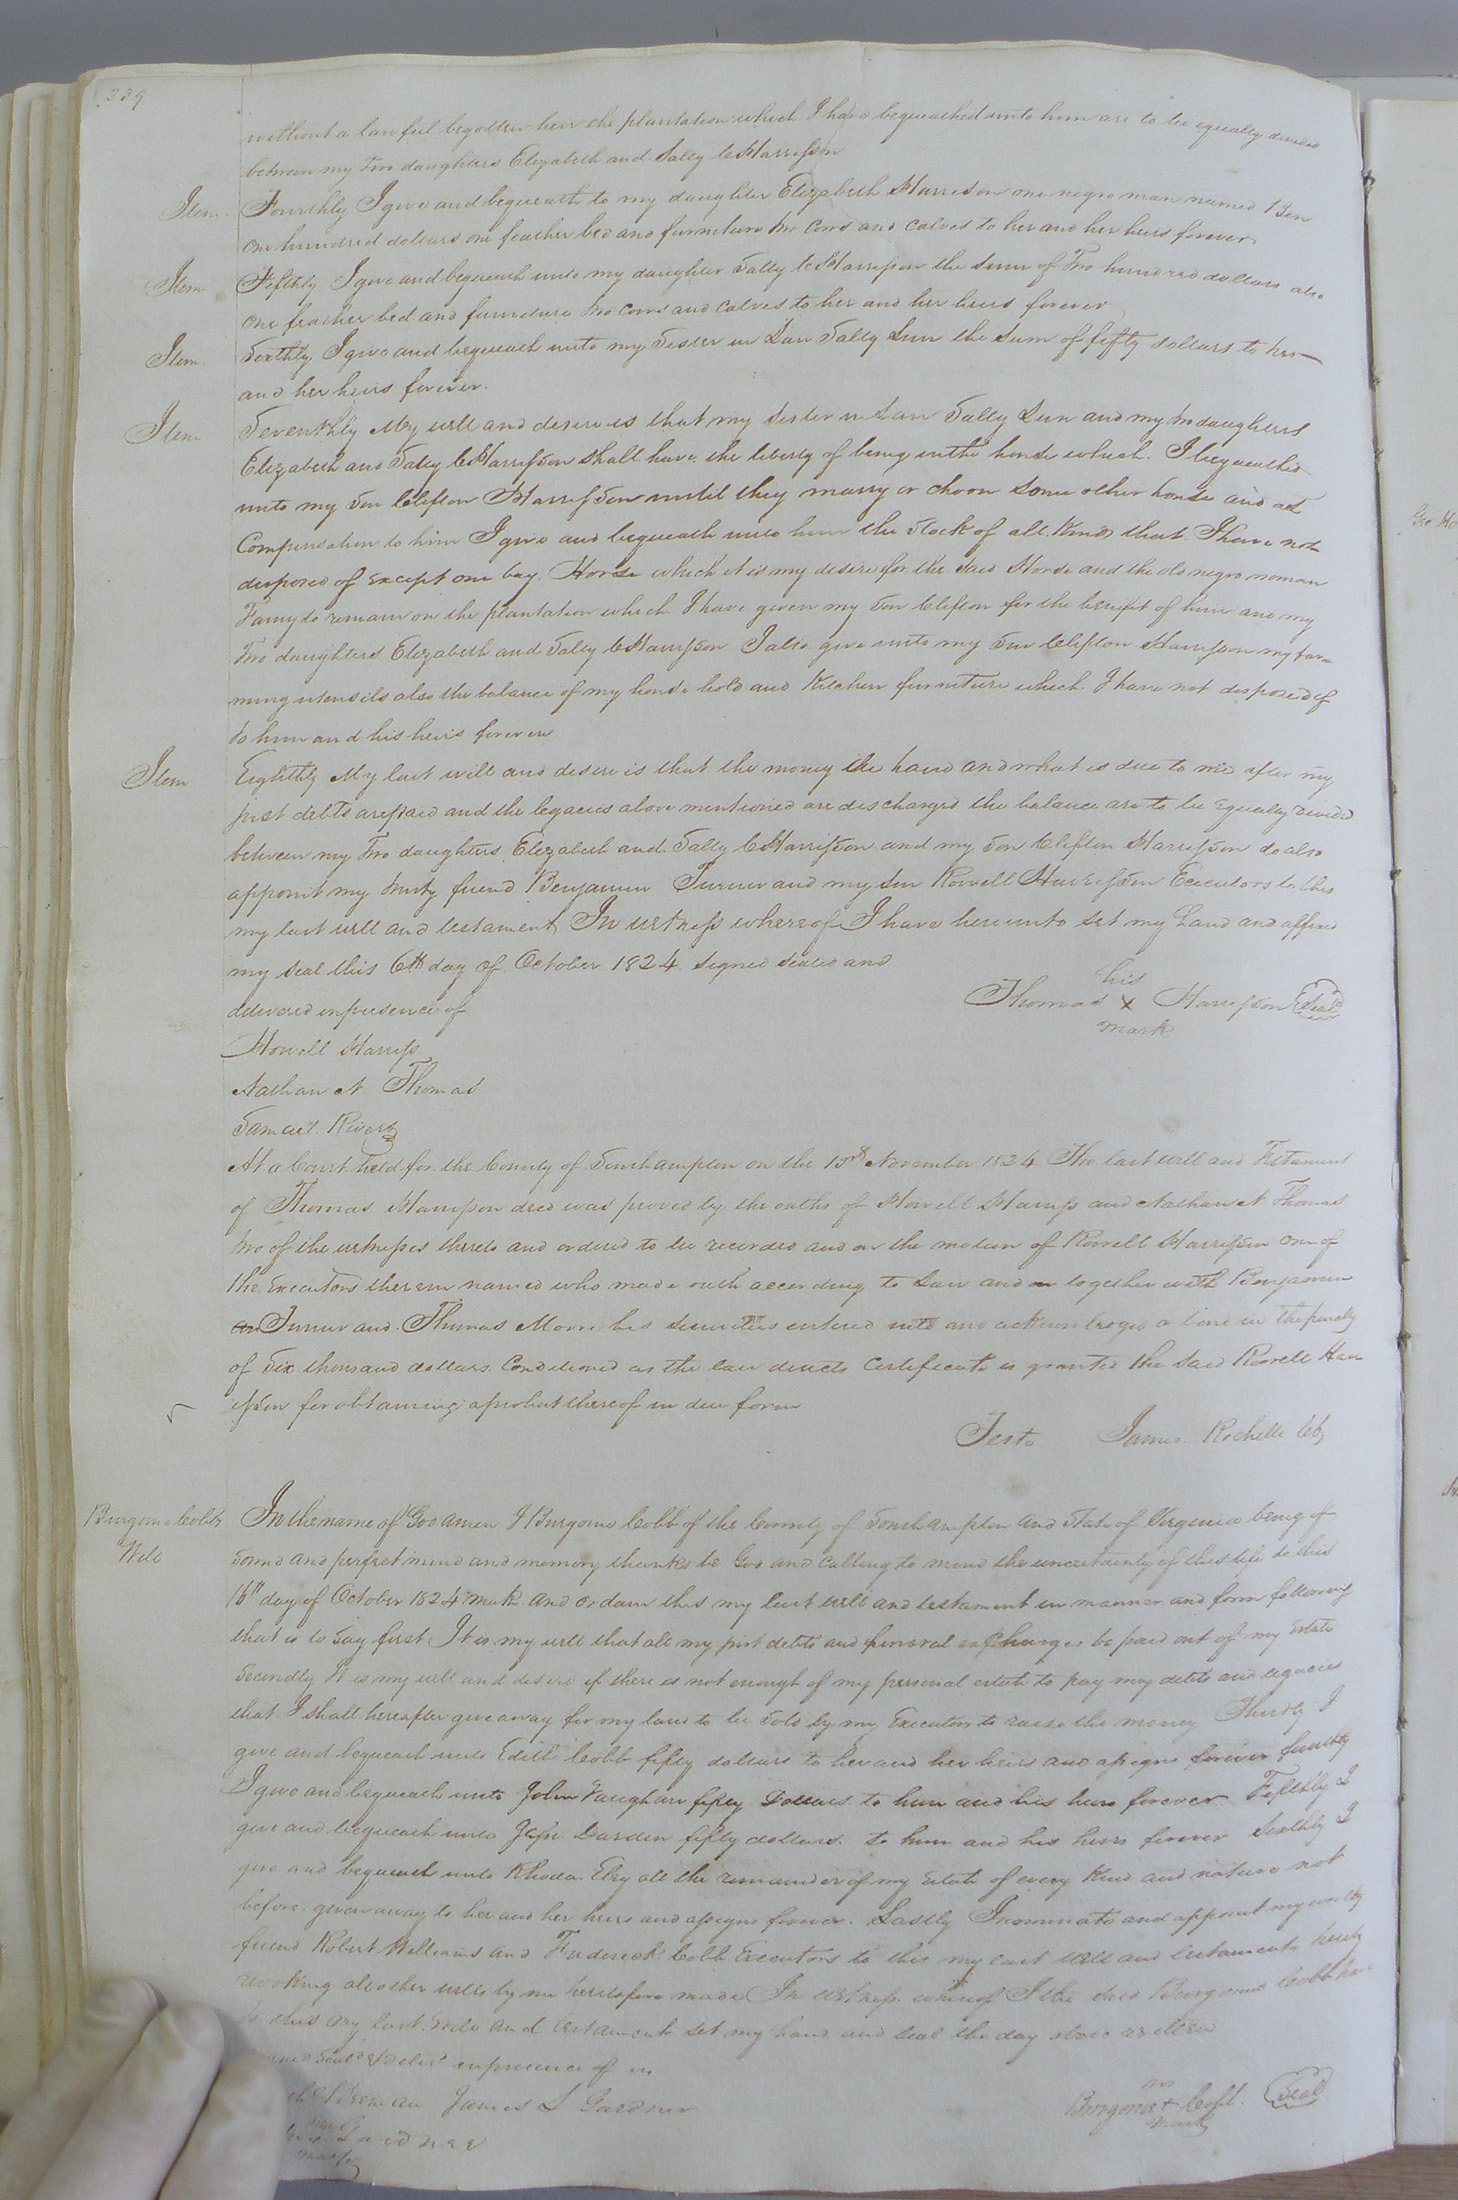 339
without a lawful begotten heir the plantation which I have bequeathed unto him are to be equally divided
between my two daughters Elizabeth and Sally C Harrisson
Item Fourthly I give and bequeath to my daughter Elizabeth Harrison one negro man named Ben
one hundred dollars one feather bed and furniture two cows and calves to her and her heirs forever
Item Fifthly I give and bequeath unto my daughter Sally C Harrisson the sum of Two hundred dollars also
one feather bed and furniture two cows and calves to her and her heirs forever
Item Sixthly I give and bequeath unto my Sister in Law Sally the Sum of fifty dollars to her
and her heirs forever.
Item Seventhly My will and desire is that my sister in Law Sally and my two daughters
Elizabeth and Sally C Harrisson shall have the liberty of being in the house which I bequeathed
unto my Son Clifton Harrisson until they marry or choose some other house and as
Compensation to him I give and bequeath unto him the Stock of all kinds that I have not
disposed of except one bay Horse which it is my desire for the said Horse and the old negro woman
to remain on the plantation which I have given my Son Clifton for the benefit of him and my
two daughters Elizabeth and Sally C Harrisson I also give unto my Son Clifton Harrisson my far=
ming utensils also the balance of my house hold and Kitchen furniture which I have not disposed of
to him and his heirs forever
Item Eighthly My last will and desire is that the money in hand and what is due to me after my
just debts are paid and the legacies above mentioned are discharged the balance are to be equally divided
between my two daughters Elizabeth and Sally C Harrisson and my Son Clifton Harrisson do also
appoint my trusty friend Benjamin Turner and my Son Rowell Harrisson Executors to this
my last will and testament In witness whereof I have hereunto set my hand and affixed
my seal this 6th day of October 1824 signed sealed and
delivered in presence of
his
Thomas x Harrisson Seal
mark
Howell Harriss
Nathan N Thomas
Samuel
At a Court held for the County of Southampton on the November 1824 The last will and Testament
of Thomas Harrisson decd was proved by the oaths of Howell Harriss and Nathan N Thomas
two of the witnesses thereto and ordered to be recorded and on the motion of Rowell Harrisson one of
the Executors therein named who made oath according to Law and together with Benjamin
Turner and Thomas his securities entered into and acknowledged a bond in the penalty
of Six thousand dollars Conditioned as the law directs Certificate is granted the said Rowell Harr
isson for obtaining a probat thereof in due form
Teste James Rochelle Clk
Burgone Cobbs In the name of God amen I Burgone Cobb of the County of Southampton and State of Virginia being of
Will Sound and perfect mind and memory thanks be God and calling to mind the uncertainty of this life do this
16th day of October 1824 make and ordain this my last will and testament in manner and form following
that is to say first It is my will that all my just debts and funeral charges be paid out of my Estate
Secondly It is my will and desire if there is not enough of my personal estate to pay my debts and legacies
that I shall hereafter give away for my land to be Sold by my Executors to raise the money Thirdly I
give and bequeath unto Edith Cobb fifty dollars to her and her heirs and assigns forever fourthly
I give and bequeath unto John Vaughan fifty Dollars to him and his heirs forever Fifthly I
give and bequeath unto Jesse Darden fifty dollars to him and his heirs forever Sixthly I
give and bequeath unto Rhoda all the remainder of my Estate of every kind and nature not
before given away to her and her heirs and assigns forever. Lastly I nominate and appoint my worthy
friend Robert Williams and Frederick Cobb Executors to this my last will and testament hereby
revoking all other wills by me heretofore made In witness whereof I the said Burgone Cobb have
to this my last will and testament set my hand and seal the day above written
Seald & Delivd in presence of us
James L Gardner
his
Burgone + Cobb. Seal
mark